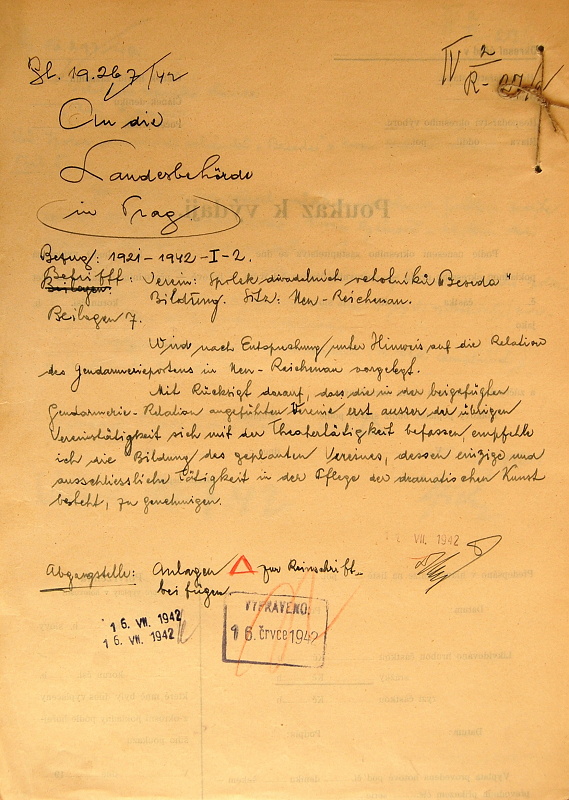 Zl. 19.267/42
IV 2
R-
An die
Landesbehörde
in Prag.
Bezug: 1921-1942-I-2.
Betrifft: Verein: Spolek divadelních ochotníků Beseda"
Beilagen:
Bildung. Sitz: Neu-Reichenau.
Beilagen 7.
Wird nach Entsprechung unter Hinweis auf die Relation
des Gendarmeriepostens in Neu-Reichenau vorgelegt.
Mit Rücksigt darauf, dass die in der beigefügten
Gendarmerie-Relation angeführten Vereine erst ausser der übrigen
Vereinstätigkeit sich mit der Theatertätigkeit befassen, empfehle
ich die Bildung des geplanten Vereines, dessen einzige und
ausschliessliche Tätigkeit in der Pflege der dramatischen Kunst
besteht, zu genehmigen.
VII. 1942
Abgangstelle: Anlagen △ zur Reinschrift
beifügen.
16. VII. 1942
16. VII. 1942
VYPRAVENO:
16. čvrce 1942
Poukaz k výdaji